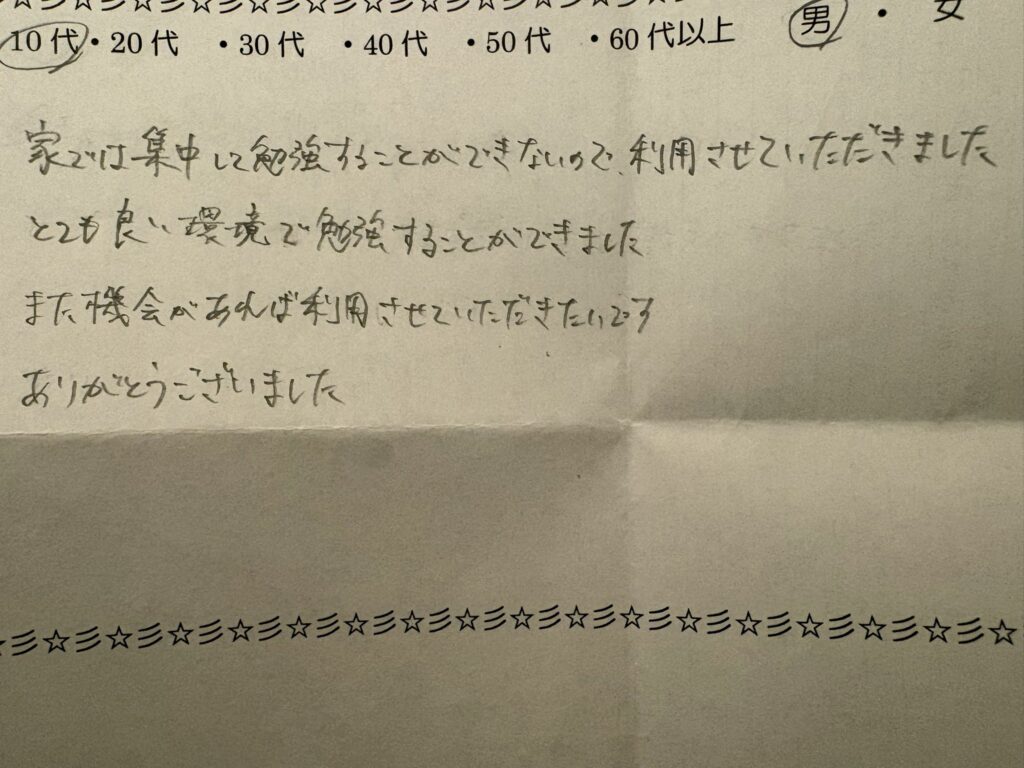 10代・20代 ・30代 ・40代 ・50代 ・60代以上 男 ・ 女
家では集中して勉強することができないので、利用させていただきました
とても良い環境で勉強することができました
また機会があれば利用させていただきたいです
ありがとうございました
☆彡☆彡☆彡☆彡☆彡☆彡☆彡☆彡☆彡☆彡☆彡☆彡☆彡☆彡☆彡☆彡☆